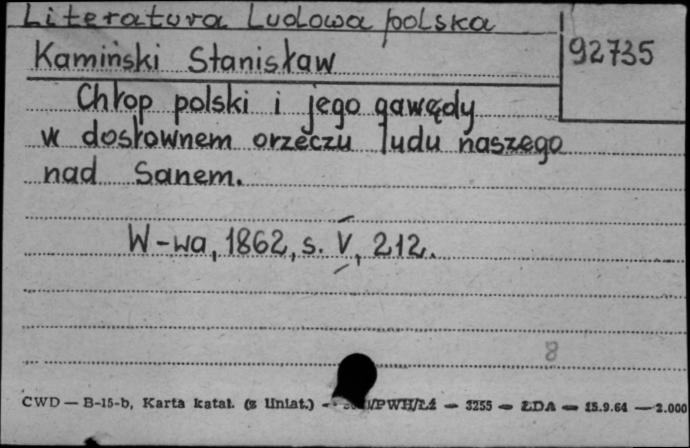 Literatura Ludowa polska
Kamiński Stanisław
92735
Chłop polski i jego gawędy
w dosłownem orzeczu ludu naszego
nad Sanem.
W-wa, 1862, s. V, 212.
8
CWD — B-15-b, Karta katal. (z liniat.) — /PWH/Łź — 3255 — ŁDA — 15.9.64 — 2.000